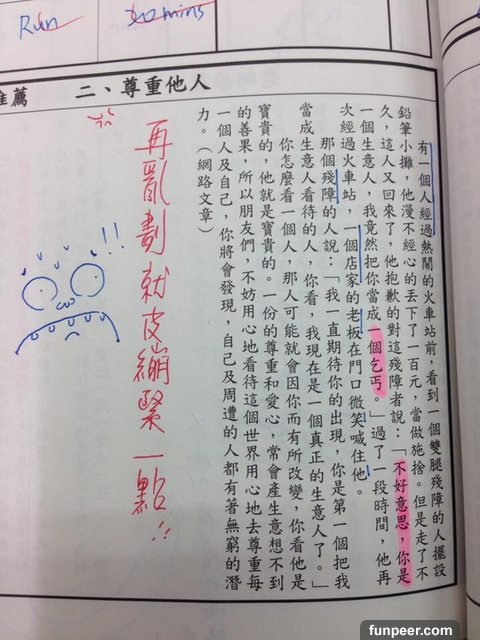 Run
30 mins
薦
二、尊重他人
有一個人經過熱鬧的火車站前,看到一個雙腿殘障的人擺設
鉛筆小攤,他漫不經心的丟下了一百元,當做施捨。但是走了不
久,這人又回來了,他抱歉的對這殘障者說:「不好意思,你是
一個生意人,我竟然把你當成一個乞丐。」過了一段時間,他再
次經過火車站,一個店家的老板在門口微笑喊住他。
那個殘障的人說:「我一直期待你的出現,你是第一個把我
當成生意人看待的人,你看,我現在是一個真正的生意人了。」
你怎麼看一個人,那人可能就會因你而有所改變,你看他是
寶貴的,他就是寶貴的。一份的尊重和愛心,常會產生意想不到
的善果,所以朋友們,不妨用心地看待這個世界用心地去尊重每
一個人及自己,你將會發現,自己及周遭的人都有著無窮的潛
力。(網路文章)
再亂劃就皮繃緊一點!!
!!
funpeer.com